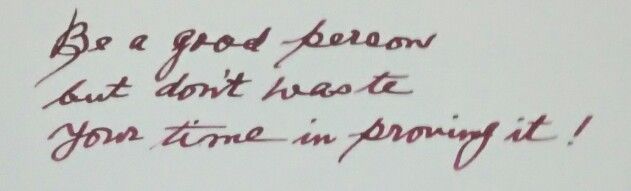 Be a good person
but don't waste
your time in proving it!